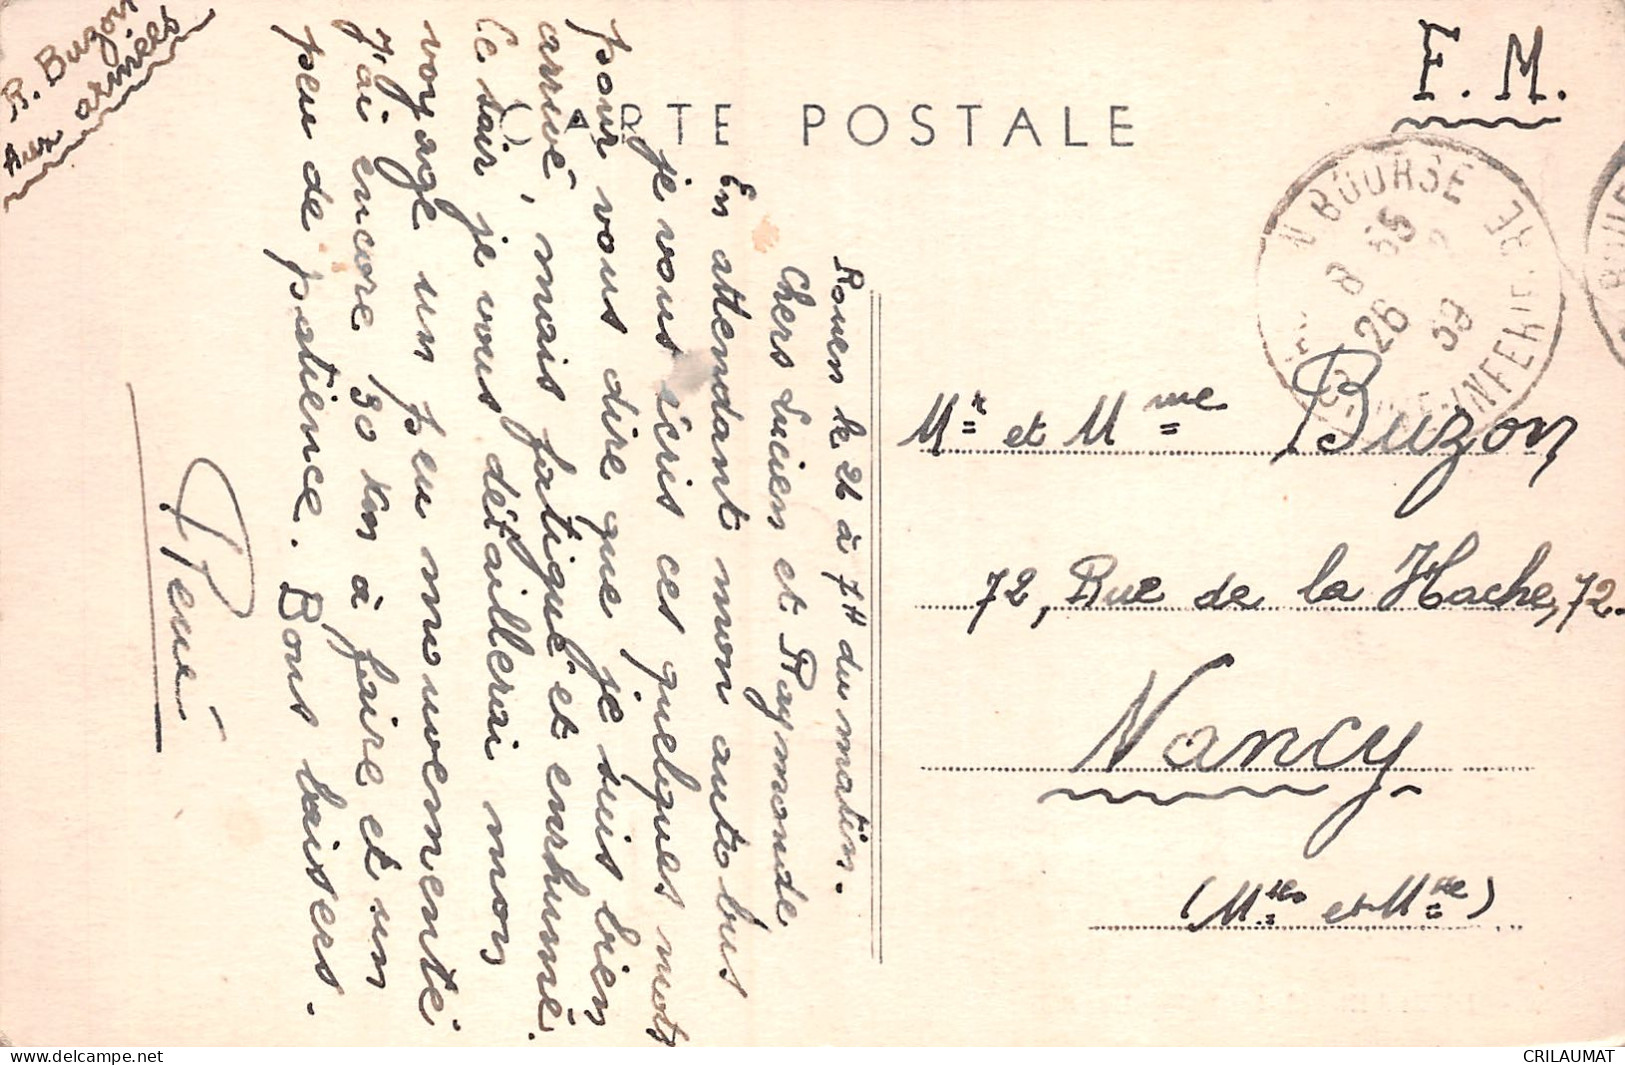 R. Buzon
aux armées
F. M.
CARTE POSTALE
N BOURSE
8 55
26
39
INFERIE RE
Rouen le 26 à 7H du matin.
Chers Lucien et Raymonde
En attendant mon autobus
je vous écris ces quelques mots
pour vous dire que je suis bien
arrivé, mais fatigué et enrhumé.
Ce soir je vous détaillerai mon
voyage un peu mouvementé
J'ai encore 30 Km à faire et un
peu de patience. Bons baisers.
René
Mr et Mme Buzon
72, Rue de la Hache, 72.
Nancy
(M et Mlle)
CRILAUMAT
www.delcampe.net